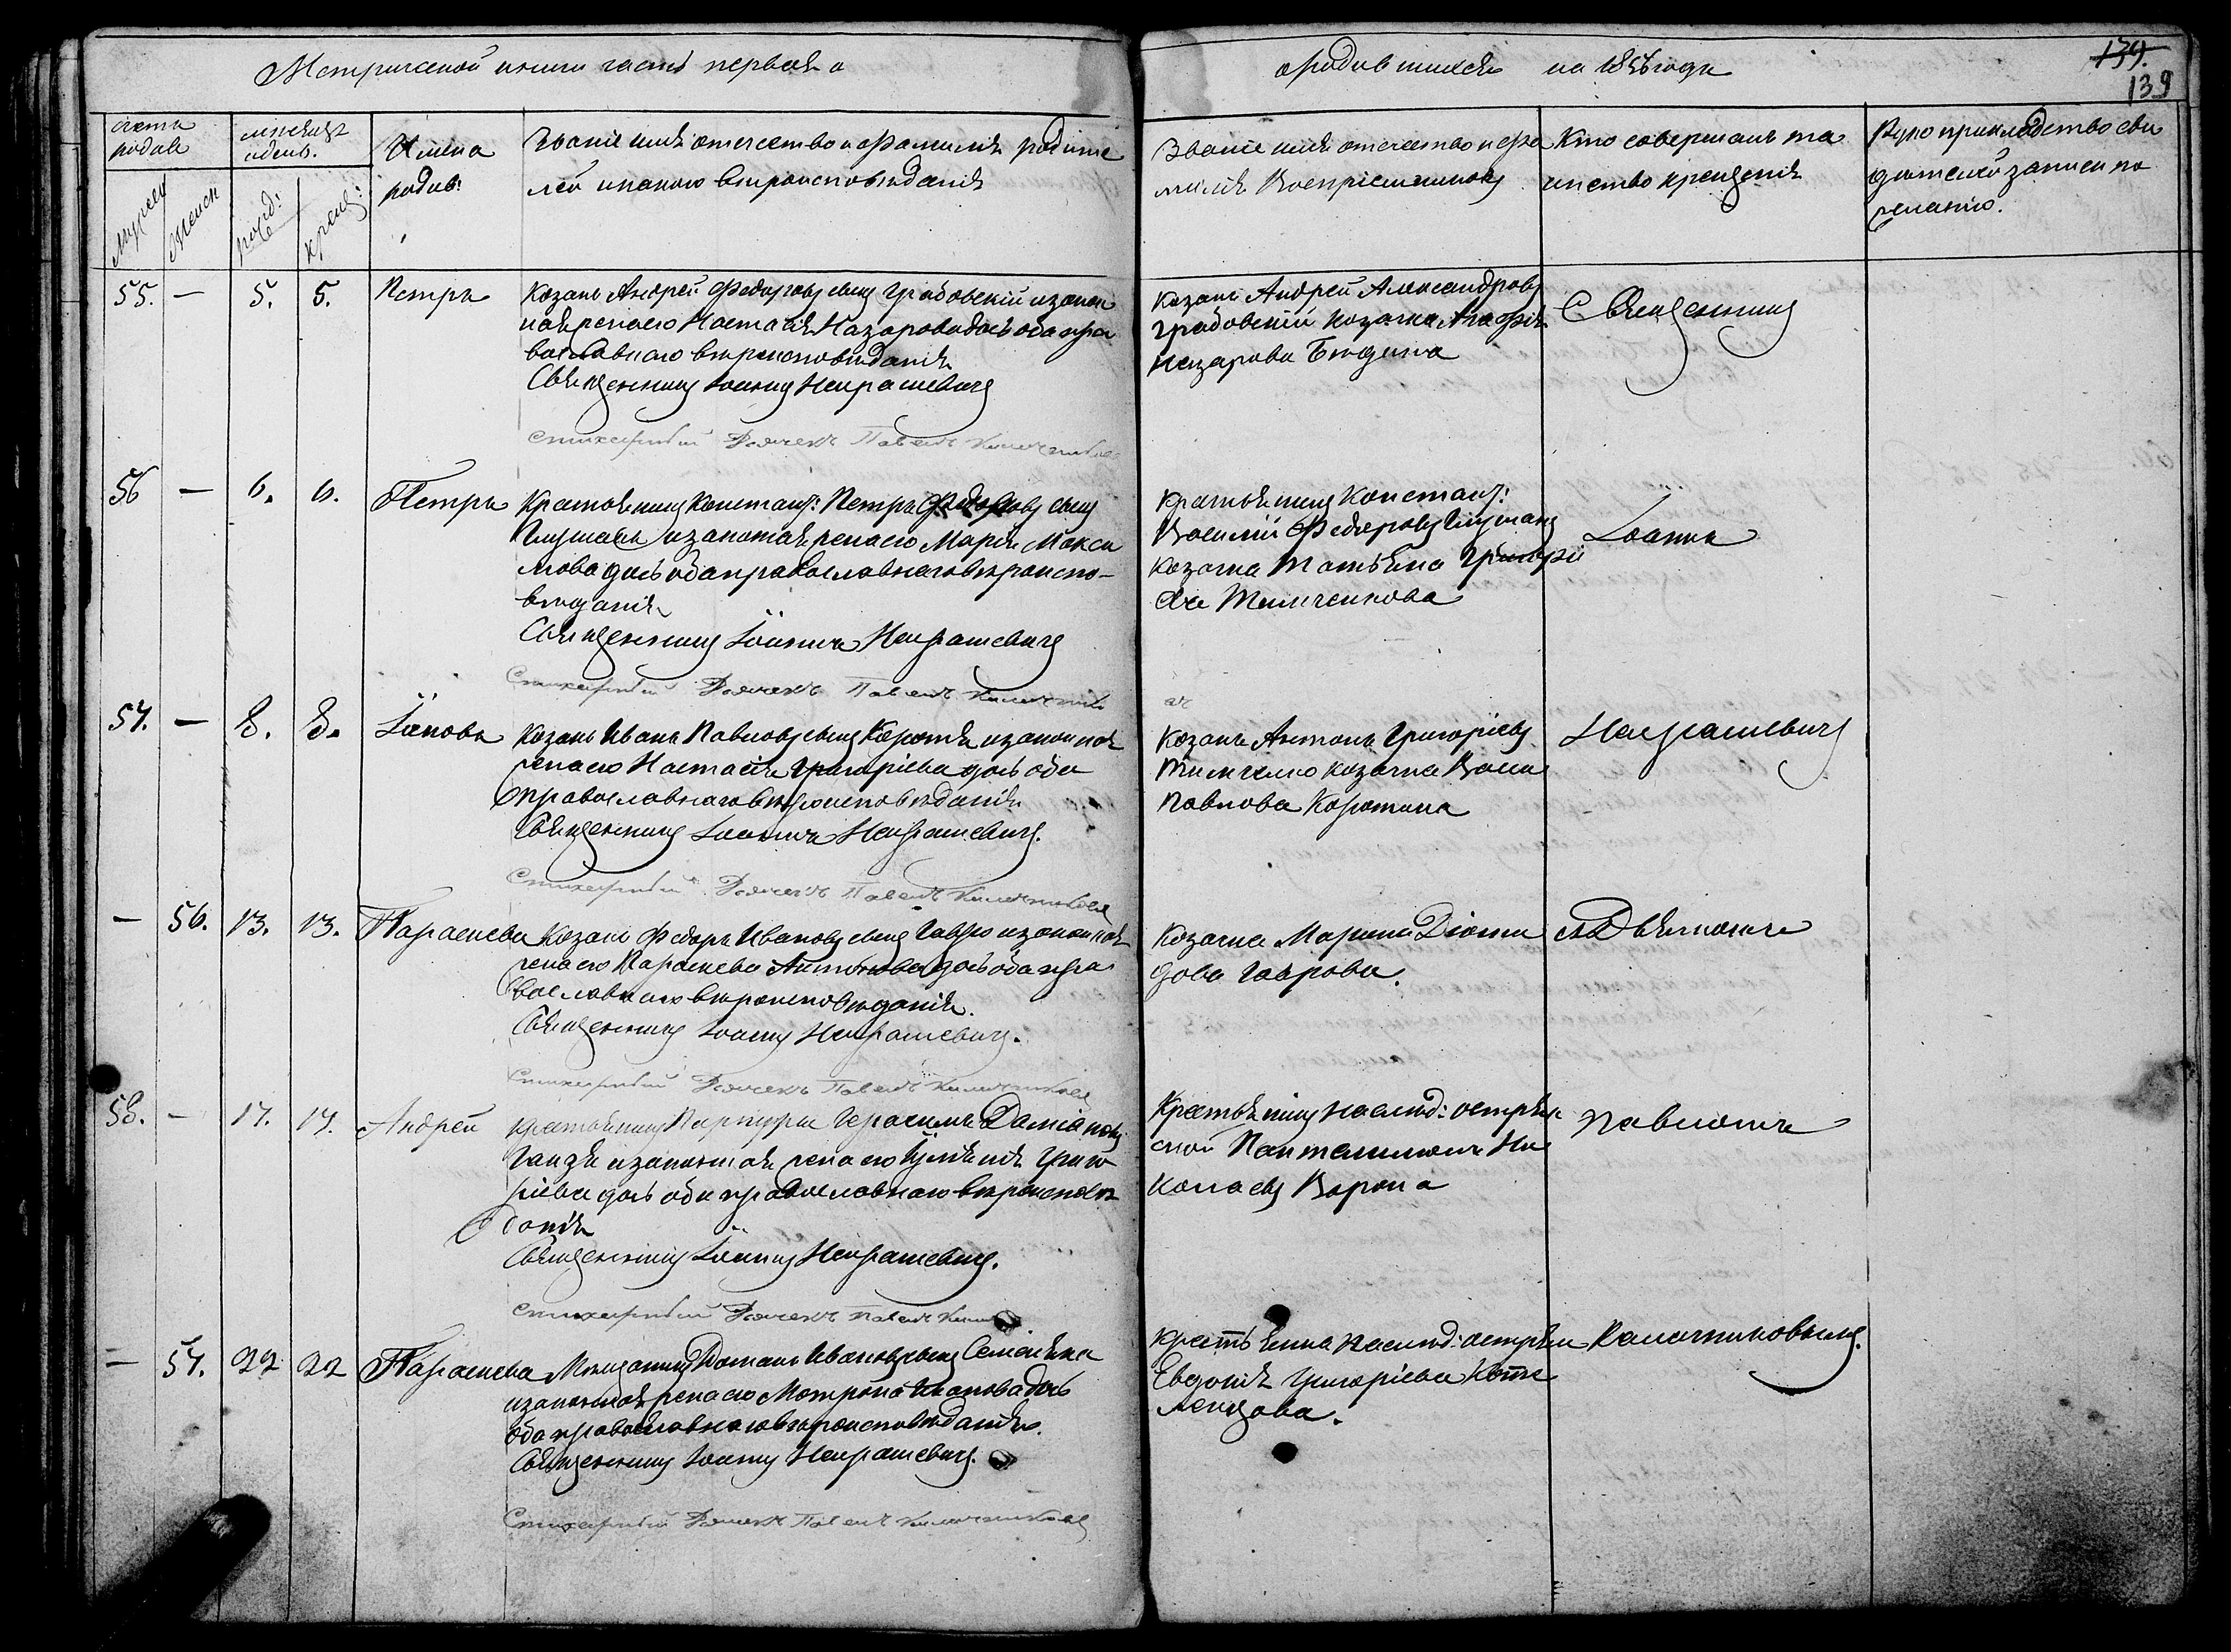 Метрической книги часть первая о
родившихся на 1856 года
139.
139
счетъ родив
мѣсяцъ и день.
Имена родив:
Званіе имя отечество и фамилія родите
лей и какого вѣроисповѣданія
Званіе имя отечество и фа
милія Воспріемниковъ
Кто совершалъ та
инство крещенія
Рукоприкладство сви
дѣтелей записи по
желанію.
мужеск
женск
рожд:
крещ:
55. — 5. 5. Петръ
Козакъ Андрей Федоровъ сынъ Грабовскій и закон
ная жена его Настасія Назарова дочь оба пра
вославнаго вѣроисповѣданія
Священникъ Іоаннъ Некрашевичъ
Стихарный Дьячекъ Павелъ
Козакъ Андрей Александровъ
Грабовскій козачка Агафія
Назарова
Священникъ
56 — 6. 6. Петръ
Крестьянинъ Констант: Петръ Федоровъ сынъ
и законная жена его Марія Макси
мова дочь оба православнаго вѣроиспо-
вѣданія
Священникъ Іоаннъ Некрашевичъ
Стихарный Дьячекъ Павелъ
Крестьянинъ Констант:
Василій Федоровъ
козачка Татьяна Григорі
ева Тимченкова
Іоаннъ
57. — 8. 8. Іаковъ
Козакъ Иванъ Павловъ сынъ Коротя и законная
жена его Настасія Григоріева дочь оба
православнаго вѣроисповѣданія
Священникъ Іоаннъ Некрашевичъ.
Стихарный Дьячекъ Павелъ
Козакъ Антонъ Григоріевъ
козачка
Павлова
Некрашевичъ
— 56. 13. 13. Параскева
Козакъ Федоръ Ивановъ сынъ Гавро и законная
жена его Параскева дочь оба пра
вославнаго вѣроисповѣданія.
Священникъ Іоаннъ Некрашевичъ.
Стихарный Дьячекъ Павелъ
Козачка Марина
дова Гаврова.
съ Дьячкомъ
58. — 17. 17. Андрей
Крестьянинъ Герасимъ Даміановъ
и законная жена его Григо
ріева дочь оба православнаго вѣроисповѣ
данія
Священникъ Іоаннъ Некрашевичъ.
Стихарный Дьячекъ Павелъ
Крестьянинъ наслѣд:
Пантелимонъ Ни
колаевъ Ворона
Павломъ
— 57. 22 22 Параскева
Мѣщанинъ Романъ Ивановъ сынъ
и законная жена его Матрона Иванова дочь
оба православнаго вѣроисповѣданія.
Священникъ Іоаннъ Некрашевичъ.
Стихарный Дьячекъ Павелъ
Крестьянка наслѣд:
Евдокія Григоріева
Калачниковымъ.